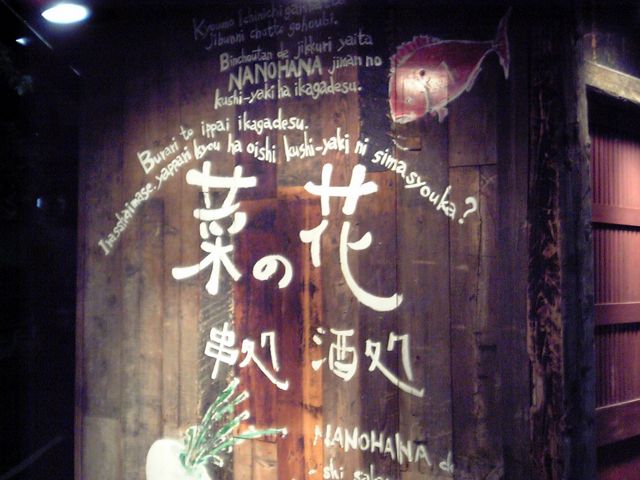 Kyoumo ichinichi
jibunni chotto gohoubi.
Binchoutan de jikkuri yaita
NANOHANA jiman no
kushi-yaki ha ikagadesu.
Burari to ippai ikagadesu.
Irasshaimase. yappari kyou ha oishi kushi-yaki ni simasyouka?
菜の花
串処 酒処
NANOHANA de